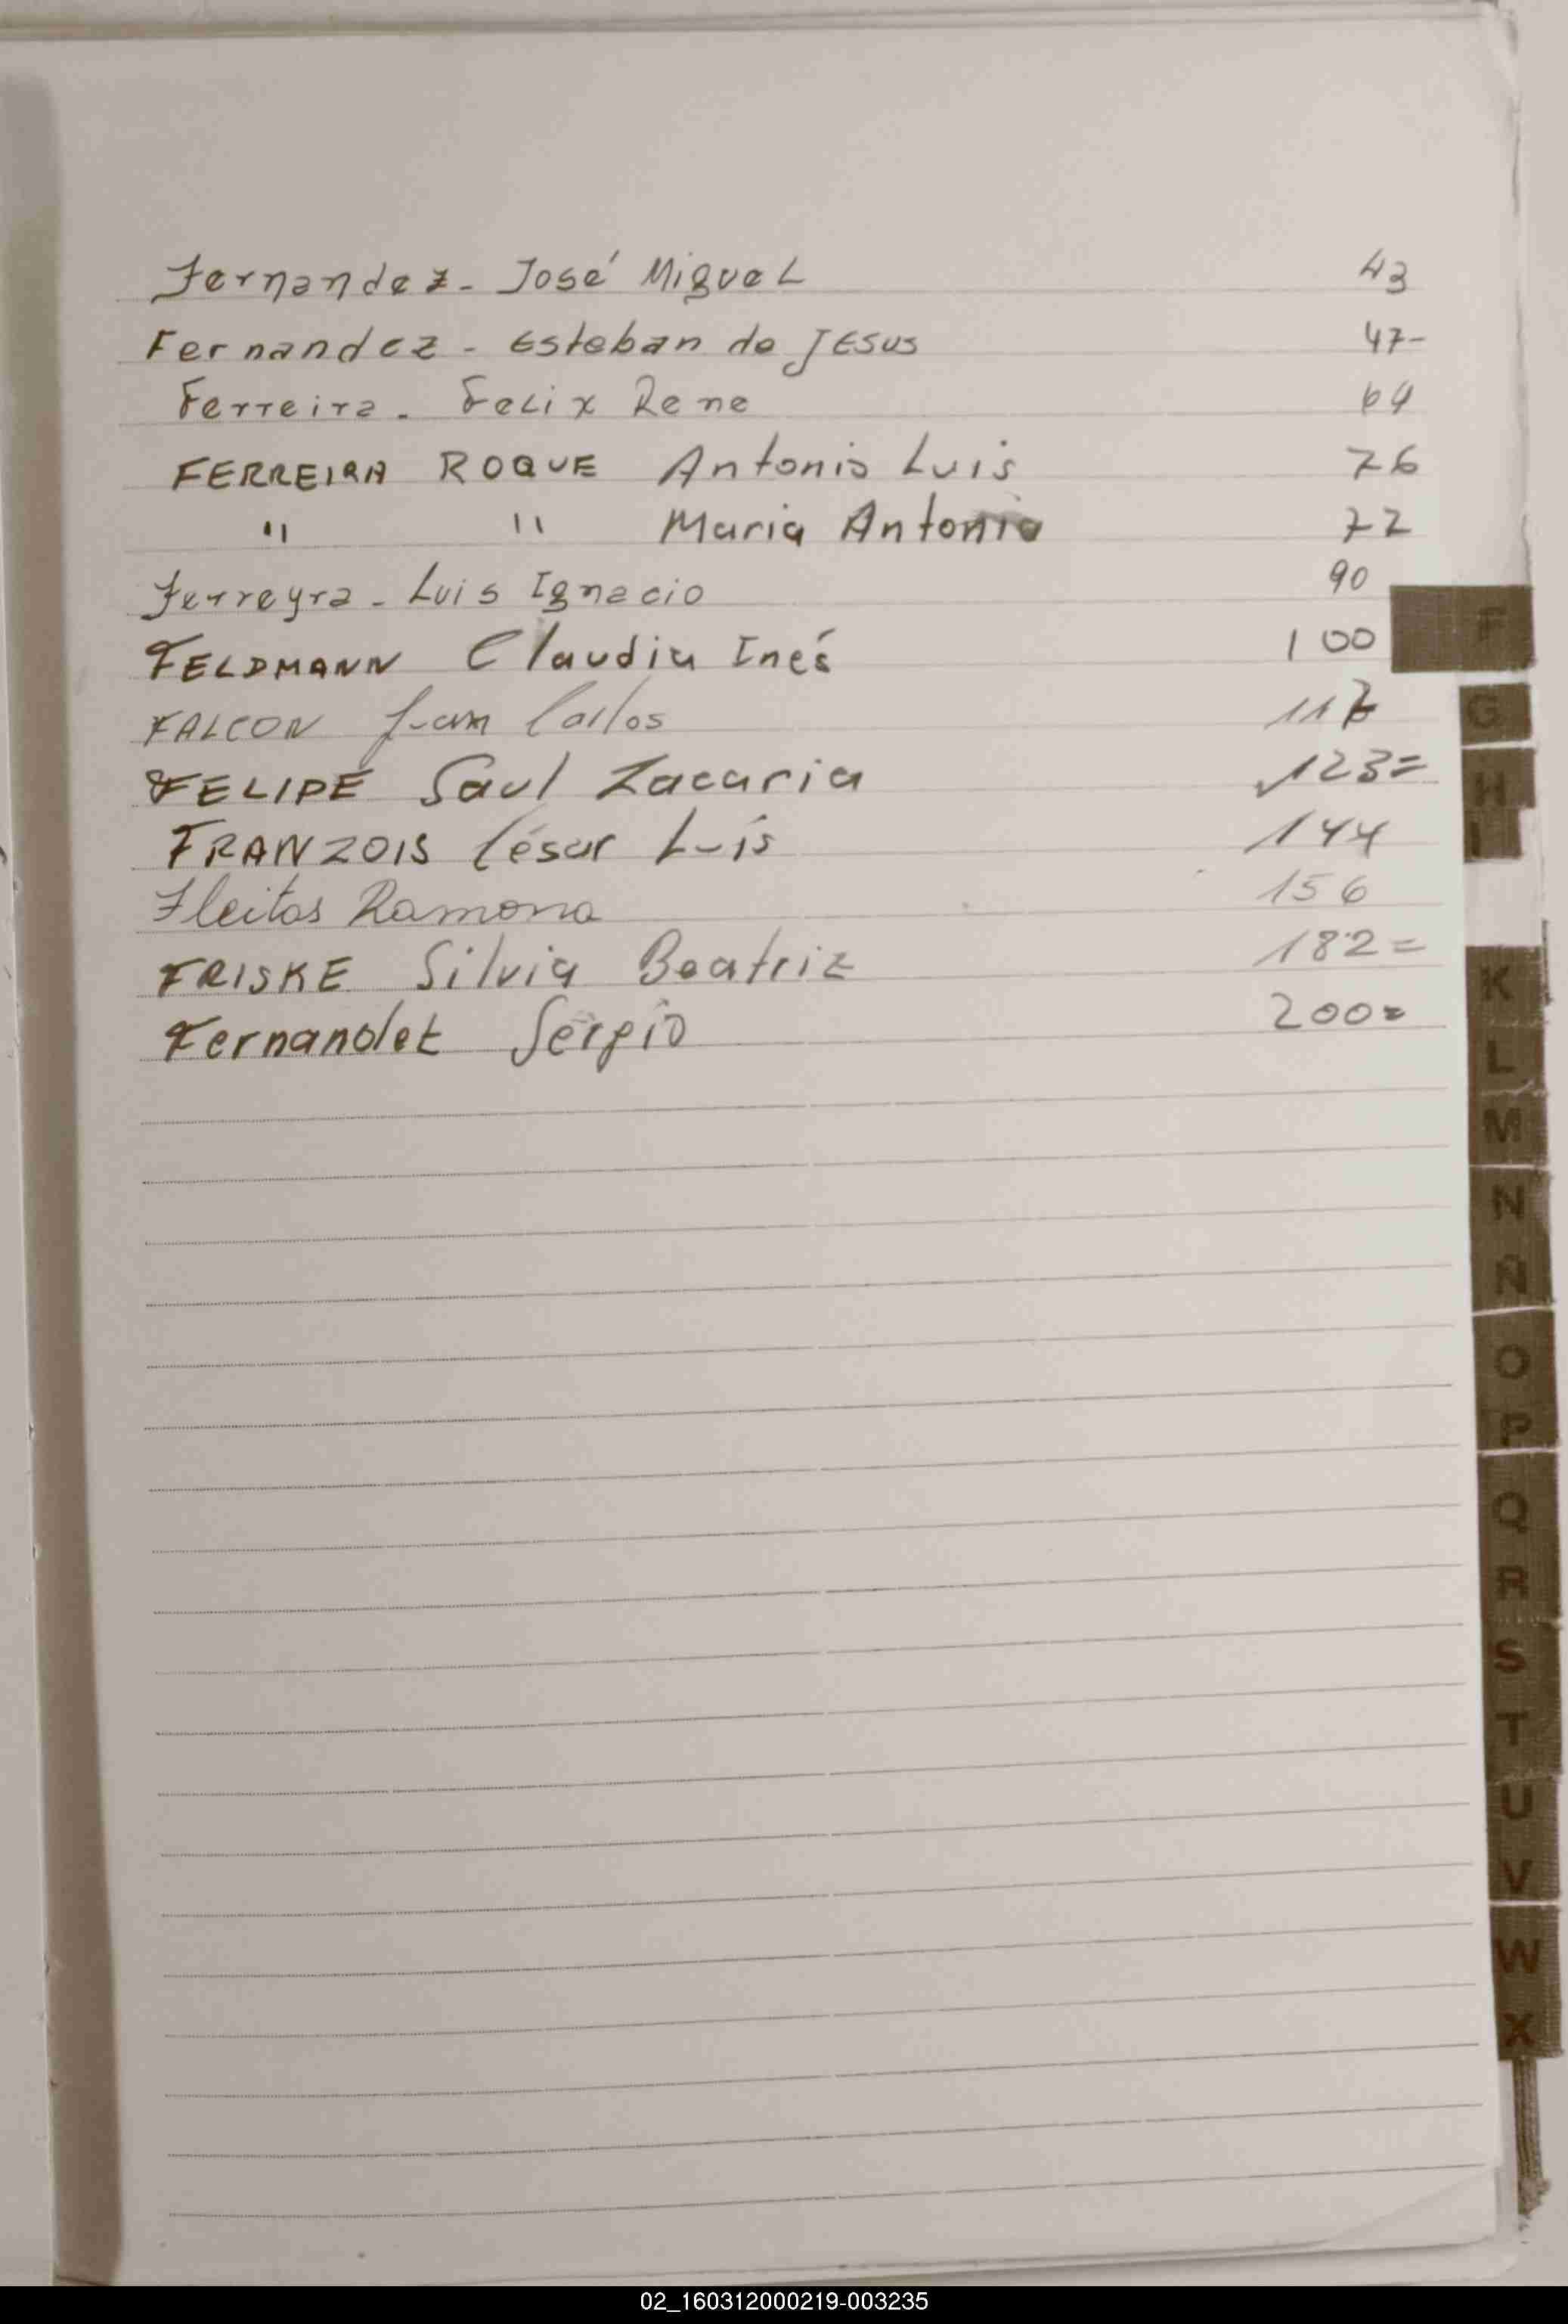 Fernandez - José Miguel 43
Fernandez - Esteban de JESUS 47-
Ferreira - Felix Rene 64
FERREIRA ROQUE Antonio Luis 76
" " Maria Antonia 77
Ferreyra - Luis Ignacio 90
FELDMANN Claudia Inés 100
FALCON Juan Carlos
FELIPE Saul Zacaria 123=
FRANZOIS César Luís 144
Fleitas Ramona 156
FRISKE Silvia Beatriz 182=
Fernandez Sergio 200=
F
G
H
I
K
L
M
N
Ñ
O
P
Q
R
S
T
U
V
W
X
02_160312000219-003235